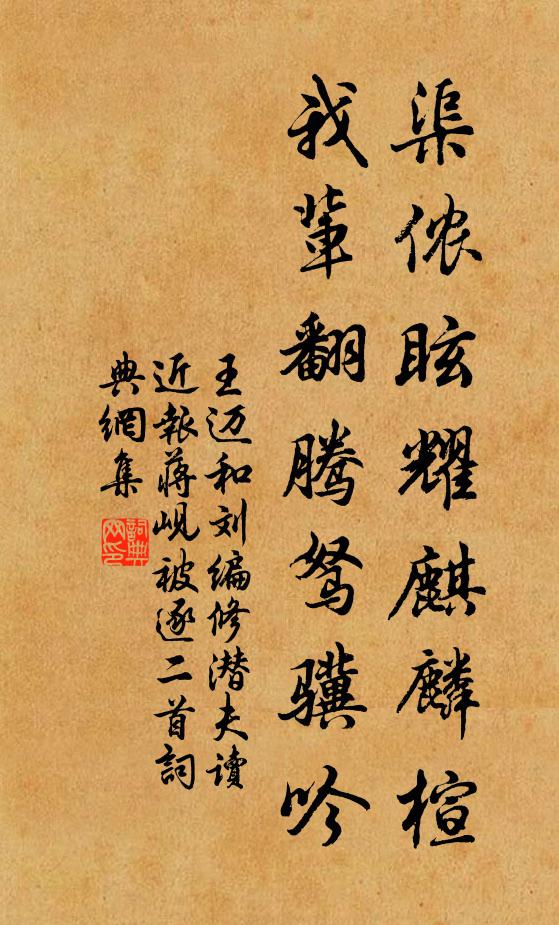 渠侬眩耀麒麟楦
我辈翻腾驽骥吟
王迈和刘编修潜夫读
近報蒋岘被逐二首詞
典網集
詞典网印